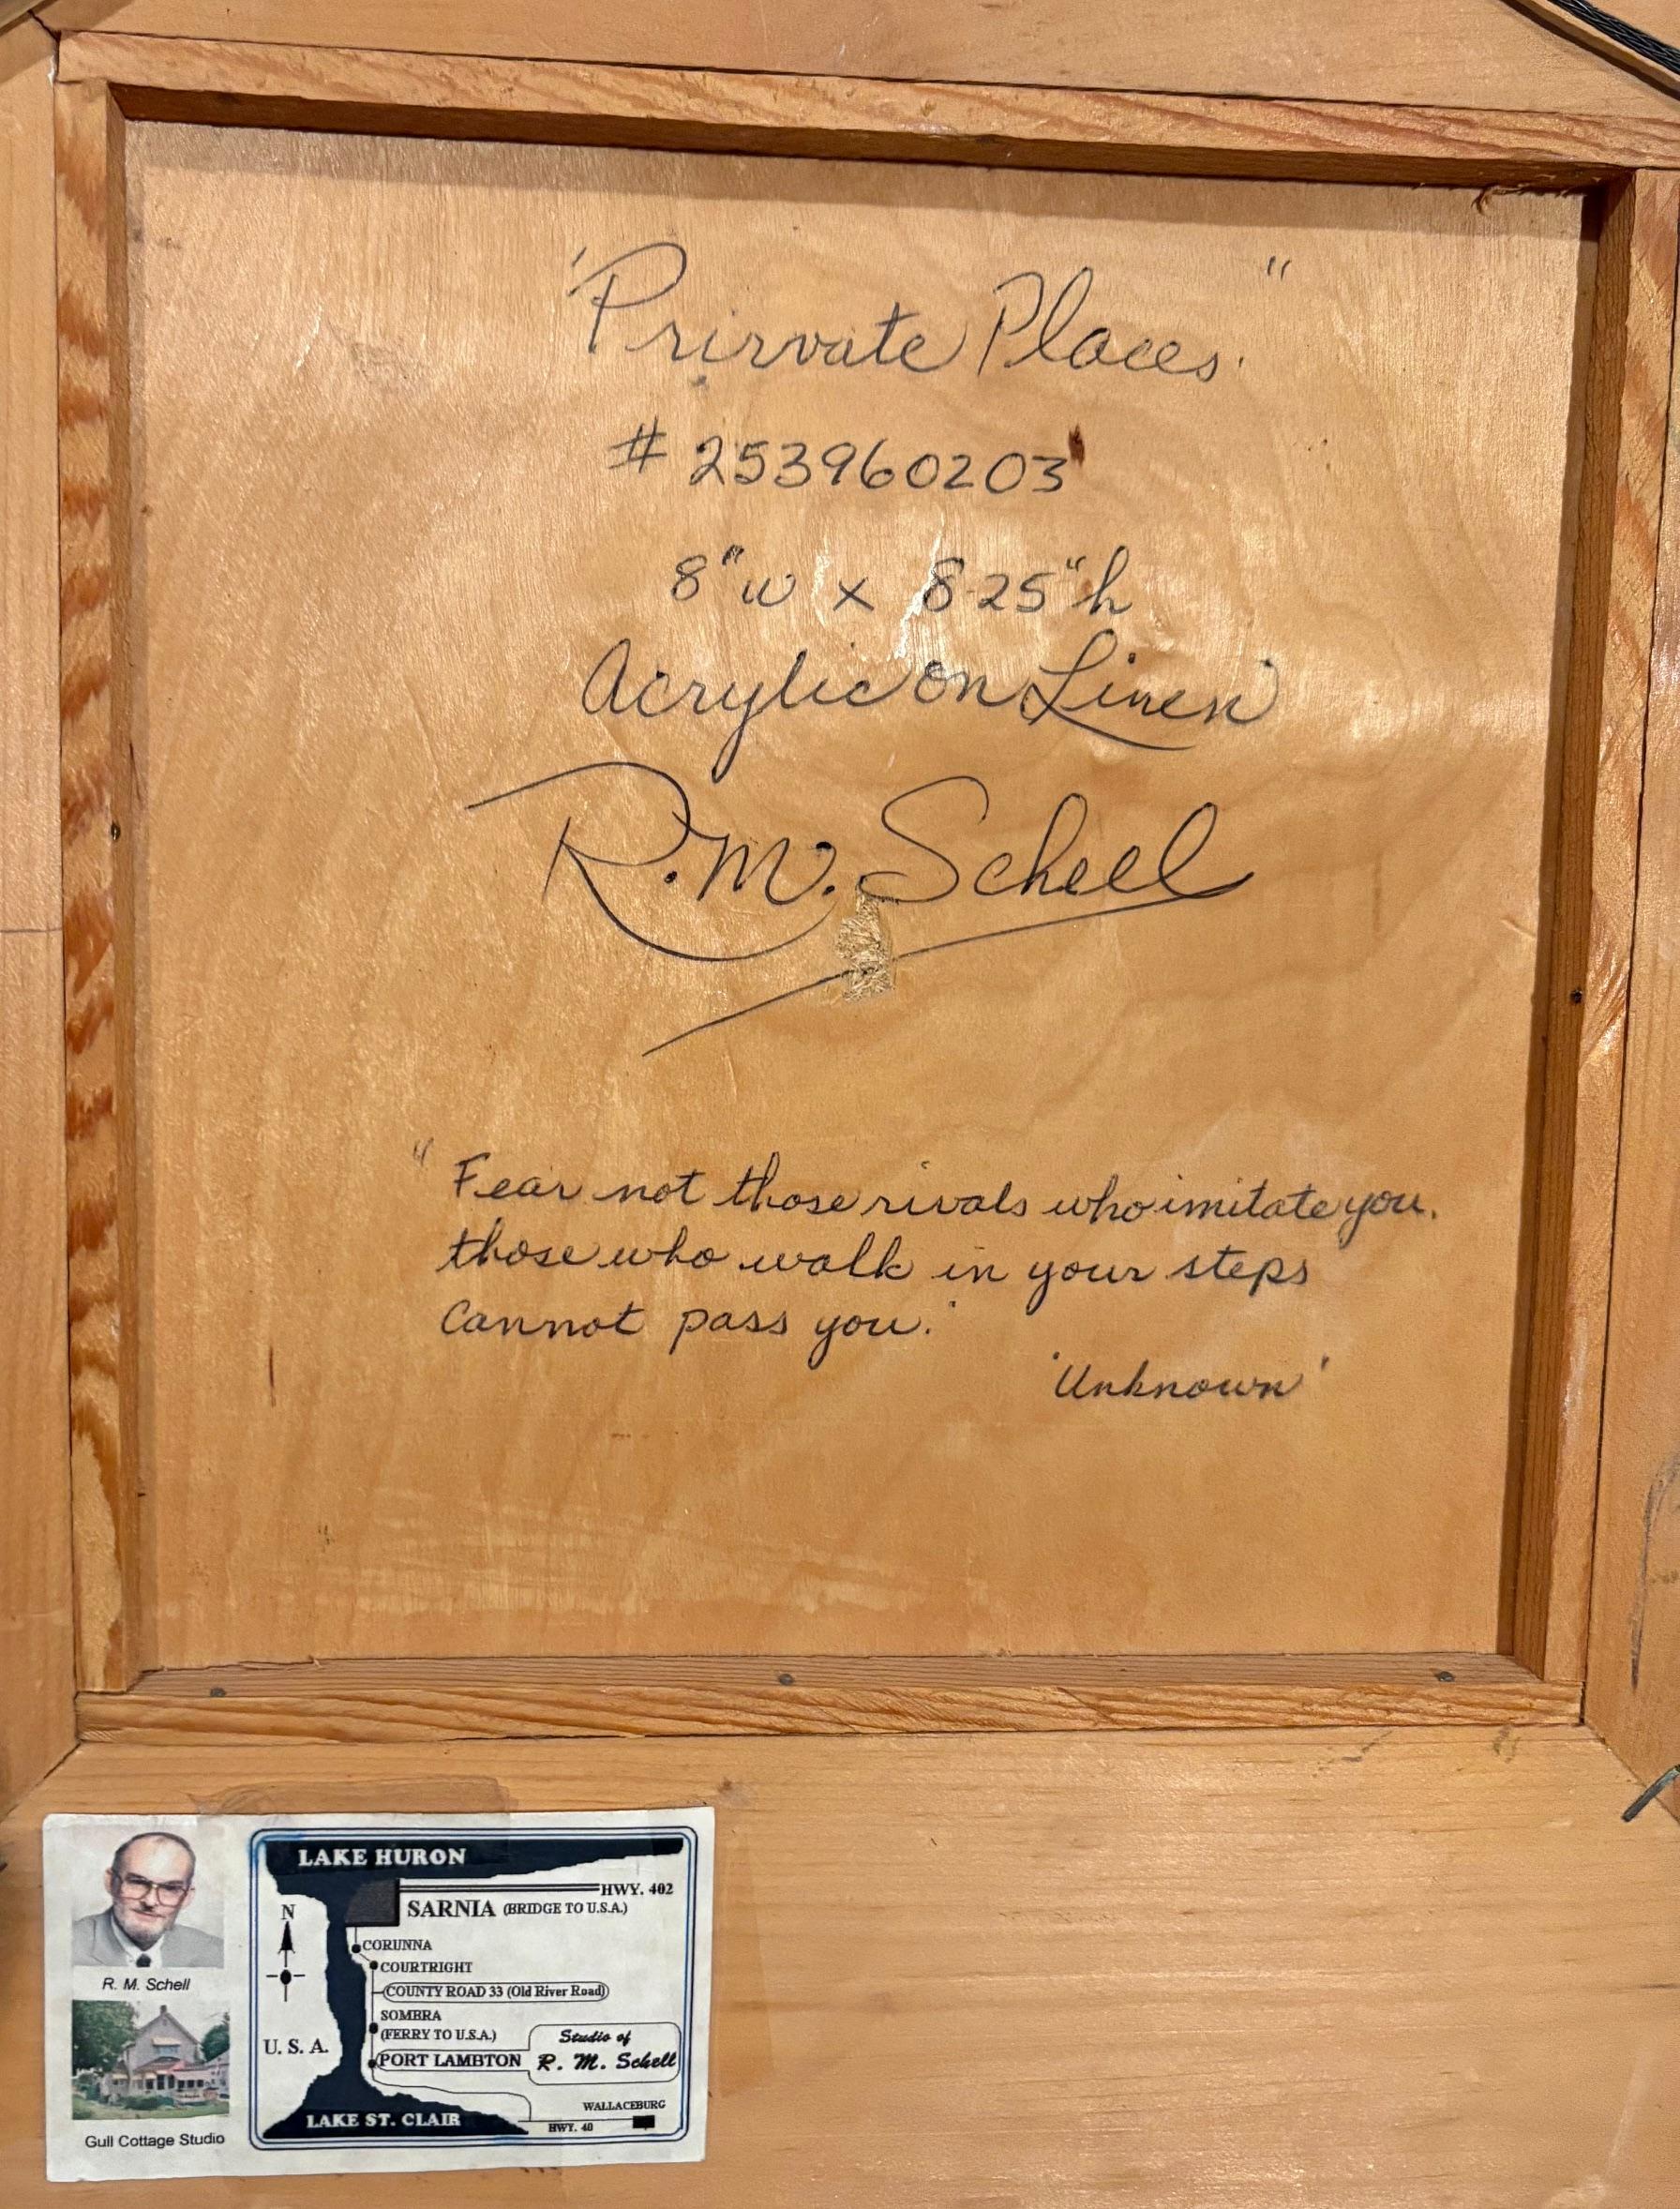 "Private Places."
# 253960203
8"w x 8.25"h
Acrylic on Linen
R.M. Schell
"Fear not those rivals who imitate you.
those who walk in your steps
cannot pass you."
'Unknown'
R. M. Schell
Gull Cottage Studio
LAKE HURON
HWY. 402
SARNIA (BRIDGE TO U.S.A.)
N
CORUNNA
COURTRIGHT
COUNTY ROAD 33 (Old River Road)
SOMBRA
(FERRY TO U.S.A.)
U. S. A.
PORT LAMBTON
Studio of
R. M. Schell
WALLACEBURG
HWY. 40
LAKE ST. CLAIR